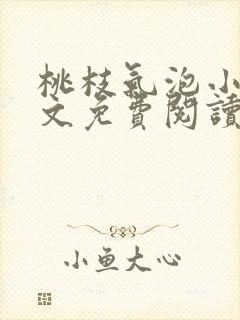 桃枝氣泡小
文免費閱讀
小鱼大心